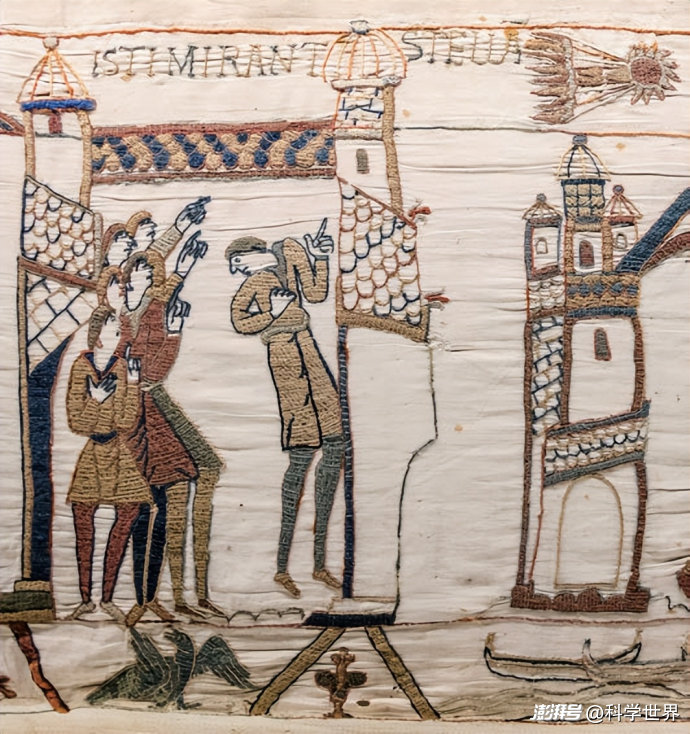 ISTI MIRANT STELLA
澎湃号@科学世界